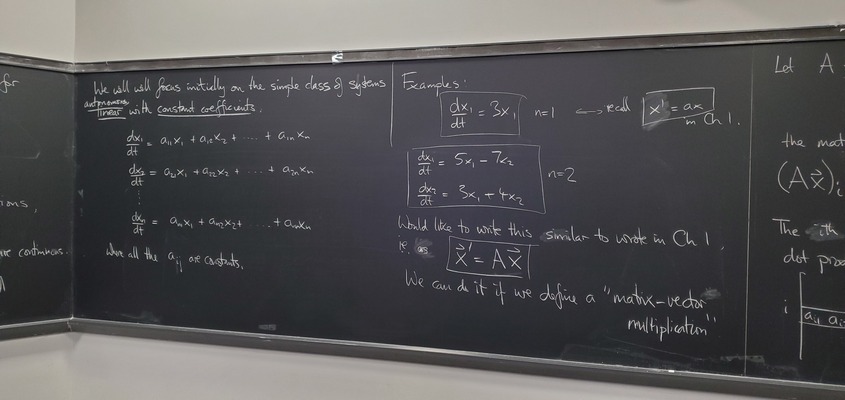 for
ions,
are continuous.
We will will focus initially on the simple class of systems
autonomous
linear with constant coefficients.
dx₁/dt = a₁₁x₁ + a₁₂x₂ + .... + a₁ₙxₙ
dx₂/dt = a₂₁x₁ + a₂₂x₂ + .... + a₂ₙxₙ
⋮
dxₙ/dt = aₙ₁x₁ + aₙ₂x₂ + .... + aₙₙxₙ
where all the aᵢⱼ are constants.
Examples:
dx₁/dt = 3x₁ n=1 ↔ recall x' = ax
in Ch 1.
dx₁/dt = 5x₁ - 7x₂
dx₂/dt = 3x₁ + 4x₂ n=2
Would like to write this similar to wrote in Ch 1,
ie. as x⃗' = Ax⃗
We can do it if we define a "matrix-vector
multiplication"
Let A
the mat
(Ax⃗)ᵢ
The ith
dot pro
i aᵢ₁ aᵢ